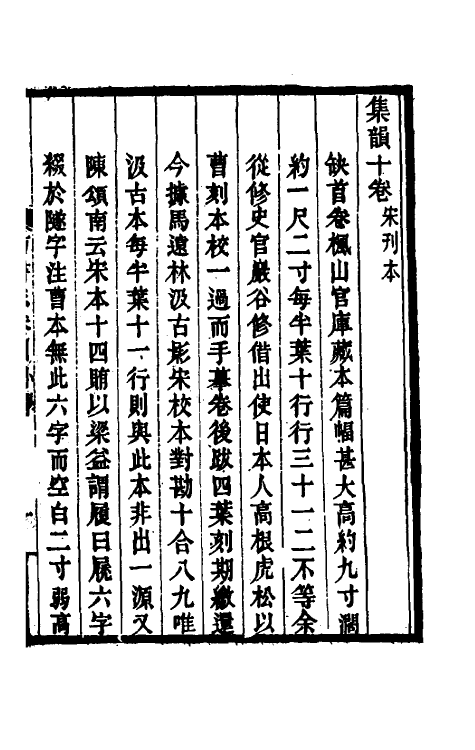 集韻十卷宋刊本
缺首卷楓山官庫藏本篇幅甚大高約九寸濶
約一尺二寸每半葉十行行三十一二不等余
從修史官巖谷修借出使日本人高根虎松以
曹刻本校一過而手摹卷後跋四葉刻期繳還
今據馬遠林汲古影宋校本對勘十合八九唯
汲古本每半葉十一行則與此本非出一源又
陳頌南云宋本十四賄以梁益謂履曰屣六字
綴於隧字注曹本無此六字而空白二寸弱髙